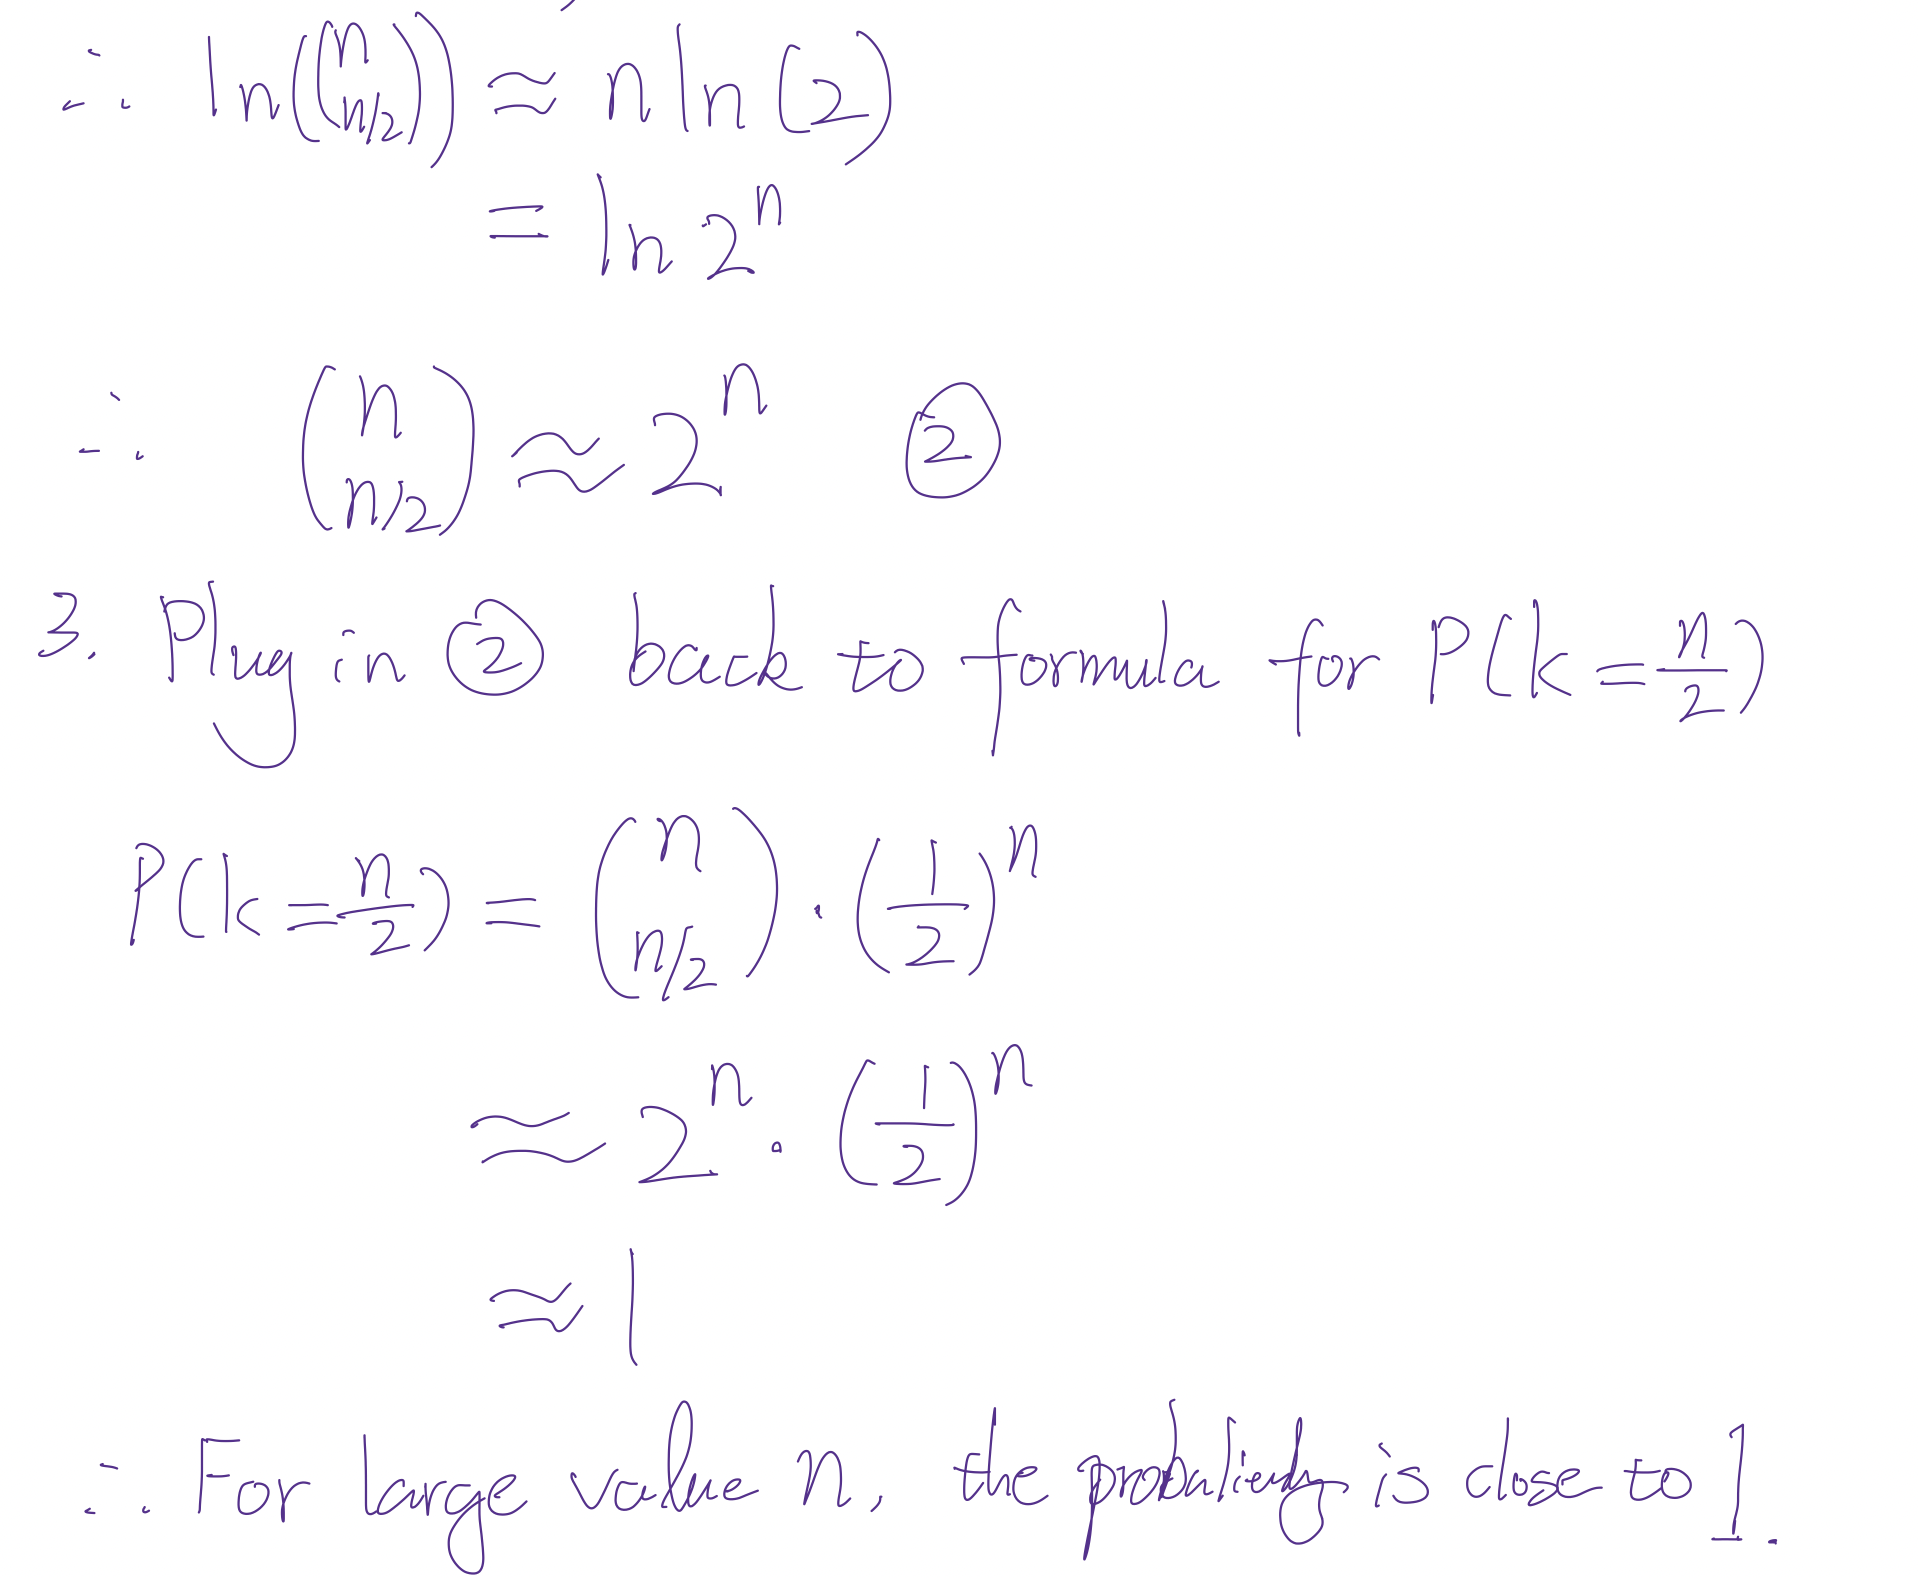 ∴ ln((n n/2)) ≈ n ln(2)
= ln 2^n
∴ (n n/2) ≈ 2^n ②
3. Plug in ② back to formula for P(k = n/2)
P(k = n/2) = (n n/2) · (1/2)^n
≈ 2^n · (1/2)^n
≈ 1
∴ For large value n, the is close to 1.